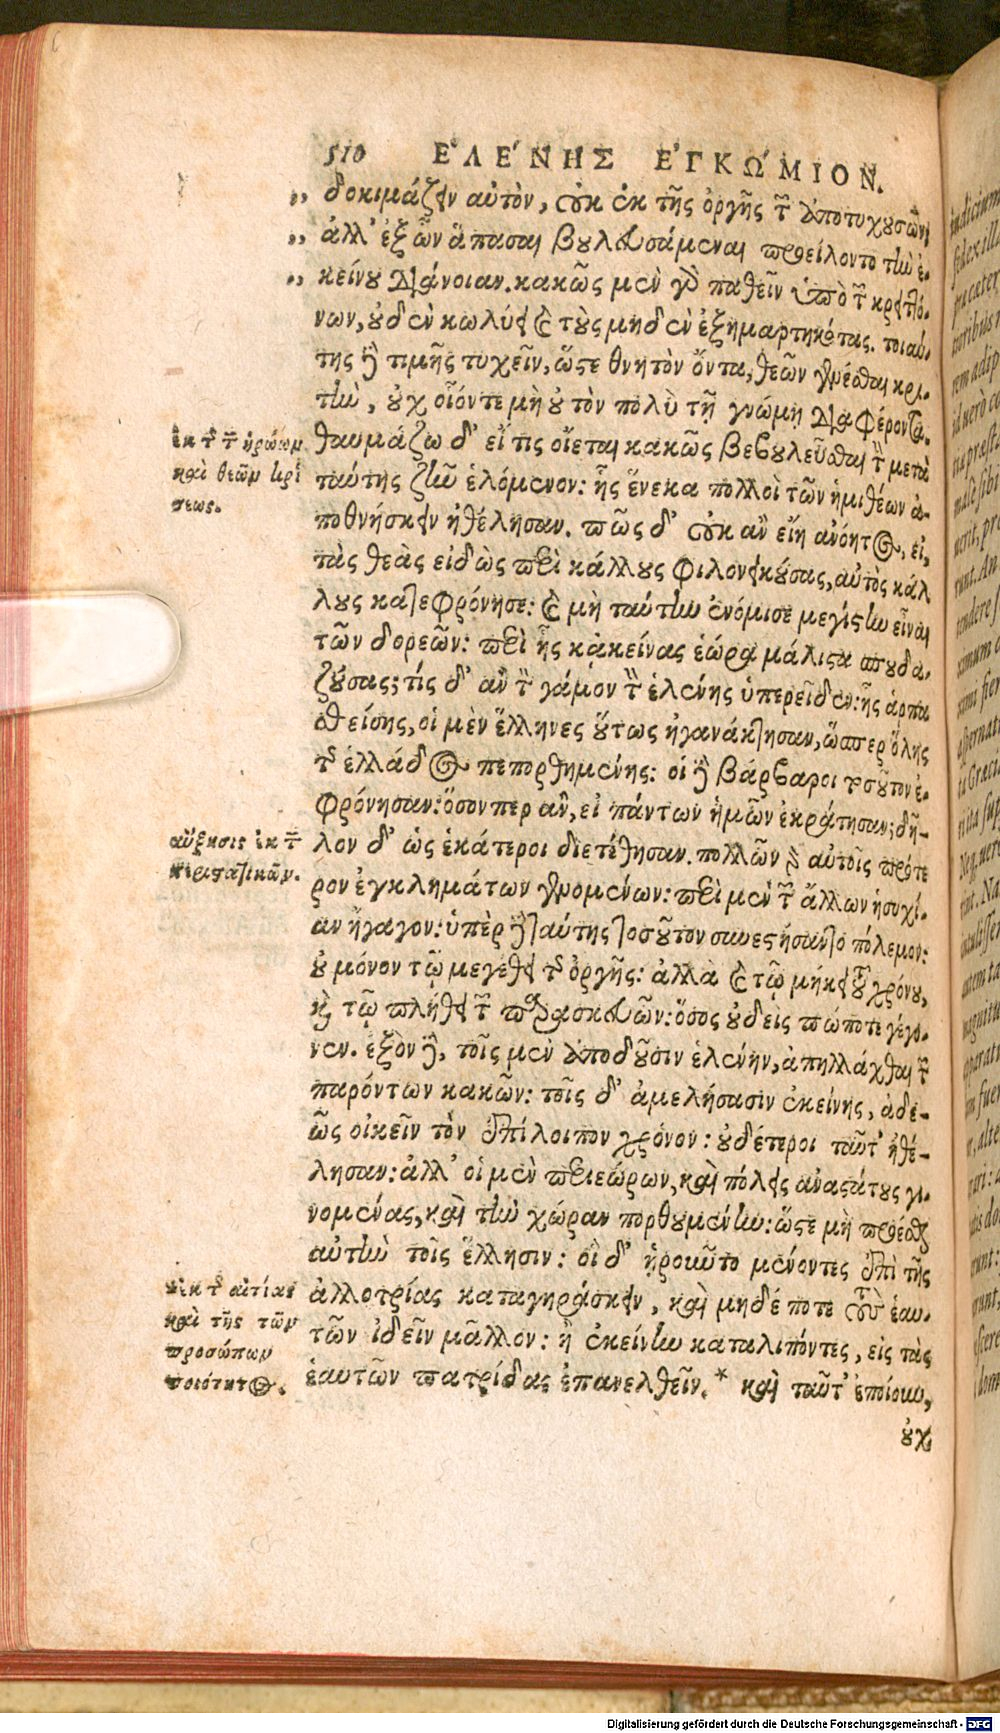 510 ΕΛΕΝΗΣ ΕΓΚΩΜΙΟΝ.
„ δοκιμάζειν αὐτὸν, οὐκ ἐκ τῆς ὀργῆς τῶν ἀποτυχουσῶν,
„ ἀλλ' ἐξ ὧν ἅπασαι βουλευσάμεναι προείλοντο τὴν ἐ-
„ κείνου διάνοιαν. κακῶς μὲν γὰρ παθεῖν ὑπὸ τῶν κρειττό-
νων, οὐδὲν κωλύει καὶ τοὺς μηδὲν ἐξημαρτηκότας. τοιαύ-
της δὲ τιμῆς τυχεῖν, ὥστε θνητὸν ὄντα, θεῶν γενέσθαι κρι-
τὴν, οὐχ οἷόντε μὴ οὐ τὸν πολὺ τῇ γνώμῃ διαφέροντα.
θαυμάζω δ' εἴ τις οἴεται κακῶς βεβουλεῦσθαι τὸν μετὰ
ταύτης ζῆν ἑλόμενον: ἧς ἕνεκα πολλοὶ τῶν ἡμιθέων ἀ-
ποθνήσκειν ἠθέλησαν. πῶς δ' οὐκ ἂν εἴη ἀνόητος, εἰ,
τὰς θεὰς εἰδὼς περὶ κάλλους φιλονεικούσας, αὐτὸς κάλ
λους κατεφρόνησε: καὶ μὴ ταύτην ἐνόμισε μεγίστην εἶναι
τῶν δορεῶν: περὶ ἧς κἀκείνας ἑώρα μάλιστα σπουδα-
ζούσας; τίς δ' ἂν τὸν γάμον τὸν ἑλένης ὑπερεῖδεν: ἧς ἁρπα
σθείσης, οἱ μὲν ἕλληνες οὕτως ἠγανάκτησαν, ὥσπερ ὅλης
τῆς ἑλλάδος πεπορθημένης: οἱ δὲ βάρβαροι τοσοῦτον ἐ-
φρόνησαν: ὅσον περ ἂν, εἰ πάντων ἡμῶν ἐκράτησαν; δῆ-
λον δ' ὡς ἑκάτεροι διετέθησαν. πολλῶν γὰρ αὐτοῖς πρότε
ρον ἐγκλημάτων γενομένων: περὶ μὲν τῶν ἄλλων ἡσυχί-
αν ἤγαγον: ὑπὲρ δὲ ταύτης τοσοῦτον συνεστήσαντο πόλεμον:
οὐ μόνον τῷ μεγέθει τῆς ὀργῆς: ἀλλὰ καὶ τῷ μήκει τοῦ χρόνου,
καὶ τῷ πλήθει τῶν παρασκευῶν: ὅσος οὐδεὶς πώποτε γέγο-
νεν. ἐξὸν δὲ, τοῖς μὲν ἀποδοῦσιν ἑλένην, ἀπηλλάχθαι τῶν
παρόντων κακῶν: τοῖς δ' ἀμελήσασιν ἐκείνης, ἀδε-
ῶς οἰκεῖν τὸν ἐπίλοιπον χρόνον: οὐδέτεροι ταῦτ' ἠθέ-
λησαν: ἀλλ' οἱ μὲν περιεώρων, καὶ πόλεις ἀναστάτους γι-
νομένας, καὶ τὴν χώραν πορθουμένην: ὥστε μὴ προέσθαι
αὐτὴν τοῖς ἕλλησιν: οἱ δ' ᾑροῦντο μένοντες ἐπὶ τῆς
ἀλλοτρίας καταγηράσκειν, καὶ μηδέ ποτε τοὺς ἑαυ-
τῶν ἰδεῖν μᾶλλον: ἢ ἐκείνην καταλιπόντες, εἰς τὰς
ἑαυτῶν πατρίδας ἐπανελθεῖν.* καὶ ταῦτ' ἐποίουν,
οὐχ
ἐκ τῆς τῶν ἡρώων
καὶ θεῶν κρί
σεως.
αὔξησις ἐκ τῶν
περιστατικῶν.
ἐκ τῆς αἰτίας
καὶ τῆς τῶν
προσώπων
ποιότητος.
Digitalisierung gefördert durch die Deutsche Forschungsgemeinschaft - DFG